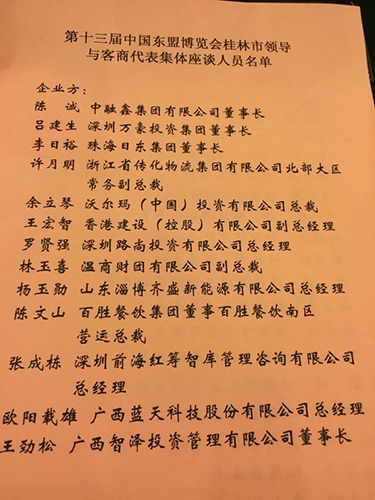 第十三届中国东盟博览会桂林市领导
与客商代表集体座谈人员名单
企业方：
陈 诚 中融鑫集团有限公司董事长
吕建生 深圳万豪投资集团董事长
李日裕 珠海日东集团董事长
许月明 浙江省传化物流集团有限公司北部大区
常务副总裁
余立琴 沃尔玛（中国）投资有限公司总裁
王宏智 香港建设（控股）有限公司副总经理
罗贤强 深圳路尚投资有限公司总经理
林玉喜 温商财团有限公司副总裁
杨玉勋 山东淄博齐盛新能源有限公司总经理
陈文山 百胜餐饮集团董事百胜餐饮南区
营运总裁
张成栋 深圳前海红筹智库管理咨询有限公司
总经理
欧阳载雄 广西蓝天科技股份有限公司总经理
王劲松 广西智泽投资管理有限公司董事长